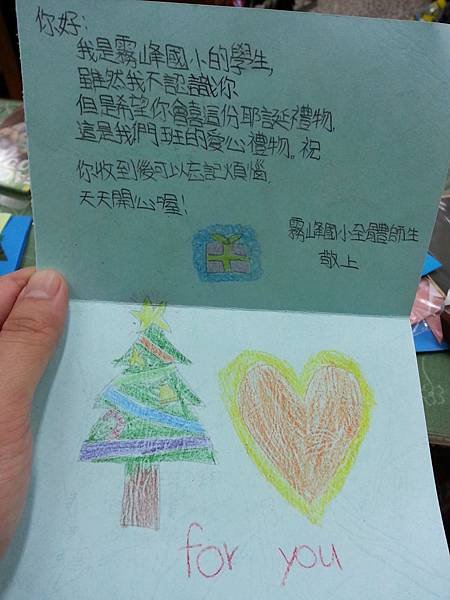 你好：
我是霧峰國小的學生，
雖然我不認識你
但是希望你會喜這份耶誕禮物，
這是我們班的愛心禮物。祝
你收到後可以忘記煩惱，
天天開心喔！
霧峰國小全體師生
敬上
for you